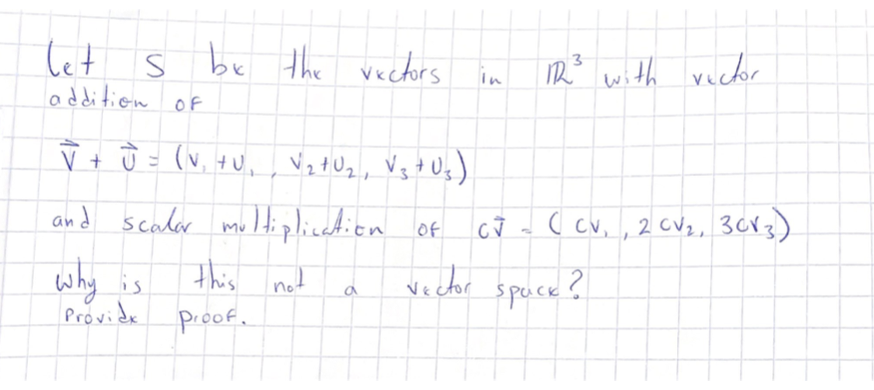 Let S be the vectors in ℝ³ with vector
addition of
v⃗ + u⃗ = (v₁ + u₁, v₂ + u₂, v₃ + u₃)
and scalar multiplication of cv⃗ = (cv₁, 2cv₂, 3cv₃)
why is this not a vector space?
Provide proof.